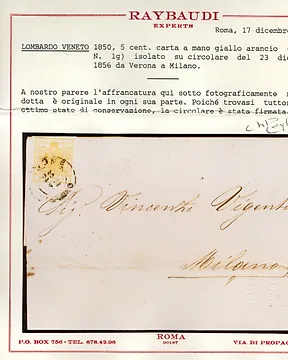 RAYBAUDI
EXPERTS
Roma, 17 dicembr
LOMBARDO VENETO 1850, 5 cent. carta a mano giallo arancio
N. 1g) isolato su circolare del 23 di
1856 da Verona a Milano.
A nostro parere l'affrancatura qui sotto fotograficamente
dotta è originale in ogni sua parte. Poiché trovasi tuttor
ottimo stato di conservazione, la circolare è stata firmata
Sig. Vincenzo Vigenti
Milano
P.O. BOX 756 - TEL. 678.42.96
ROMA
00187
VIA DI PROPAG